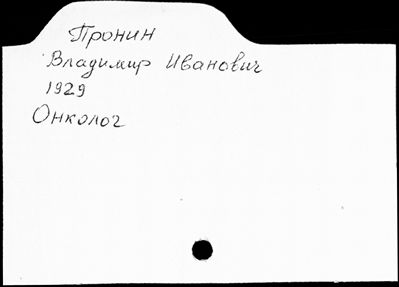 Пронин
Владимир Иванович
1929
Онколог